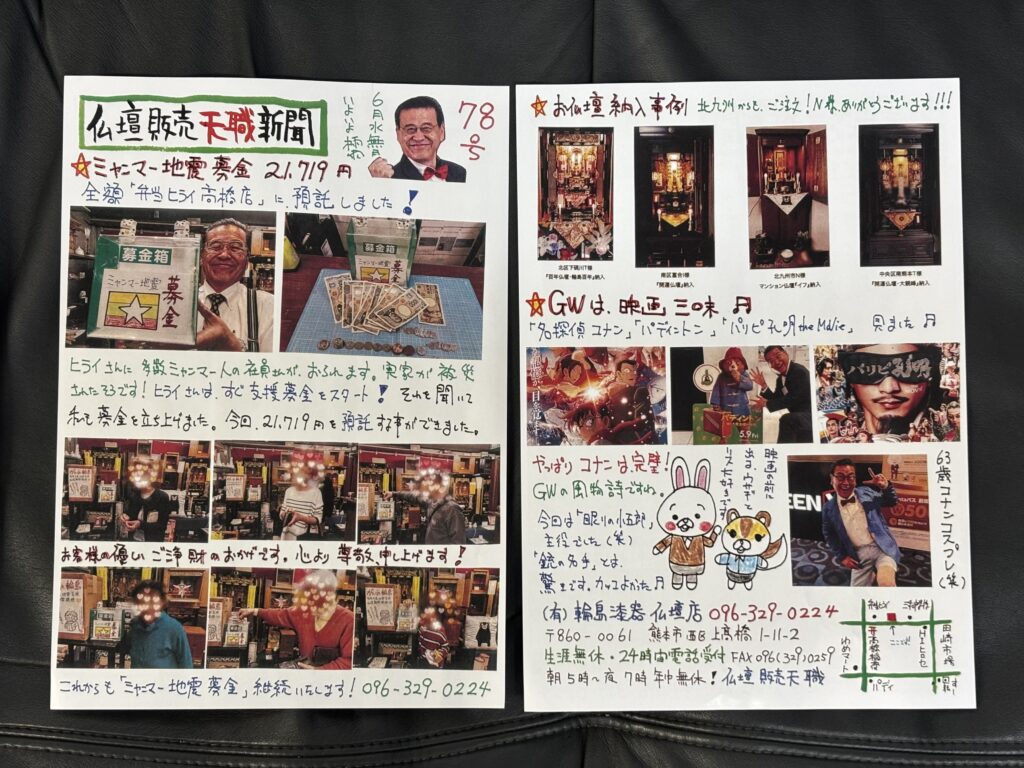 仏壇販売天職新聞
6月水無月
いよいよ梅雨
78号
☆ミャンマー地震募金 21,719円
全額「弁当ヒライ高橋店」に、預託しました!
募金箱
ミャンマー地震
募金
募金箱
ミャンマー地震
募金
ヒライさんに多数ミャンマー人の社員さんが、おられます。実家が被災
されたそうです!ヒライさんは、すぐ支援募金をスタート!それを聞いて
私も募金を立ち上げました。今回、21,719円を預託する事ができました。
お客様の優しいご浄財のおかげです。心より尊敬、申し上げます!
これからも「ミャンマー地震募金」継続いたします!096-329-0224
☆お仏壇納入事例 北九州からも、ご注文!N様、ありがとうございます!!!
北区下硯川T様
『百年仏壇・輪島百年』納入
南区富合I様
『開運仏壇』納入
北九州市N様
マンション仏壇『イフ』納入
中央区南熊本T様
『開運仏壇・大銀峰』納入
☆GWは、映画三昧♬
「名探偵コナン」「パディントン」「パリピ孔明 the Movie」見ました♬
パディントン
5.9 Fri
パリピ孔明
やっぱりコナンは、完璧!
GWの風物詩ですね。
今回は「眠りの小五郎」
主役でした(笑)
「銃の名手」とは、
驚きです。カッコよかった♬
映画の前に
出る、ウサギと
リス大好きです
63歳コナンコスプレ(笑)
(有)輪島漆器仏壇店 096-329-0224
〒860-0061 熊本市西区上高橋1-11-2
生涯無休・24時間電話受付 FAX096(329)0259
朝5時〜夜7時年中無休!仏壇販売天職
ここです!
田崎市場
ゆめマート